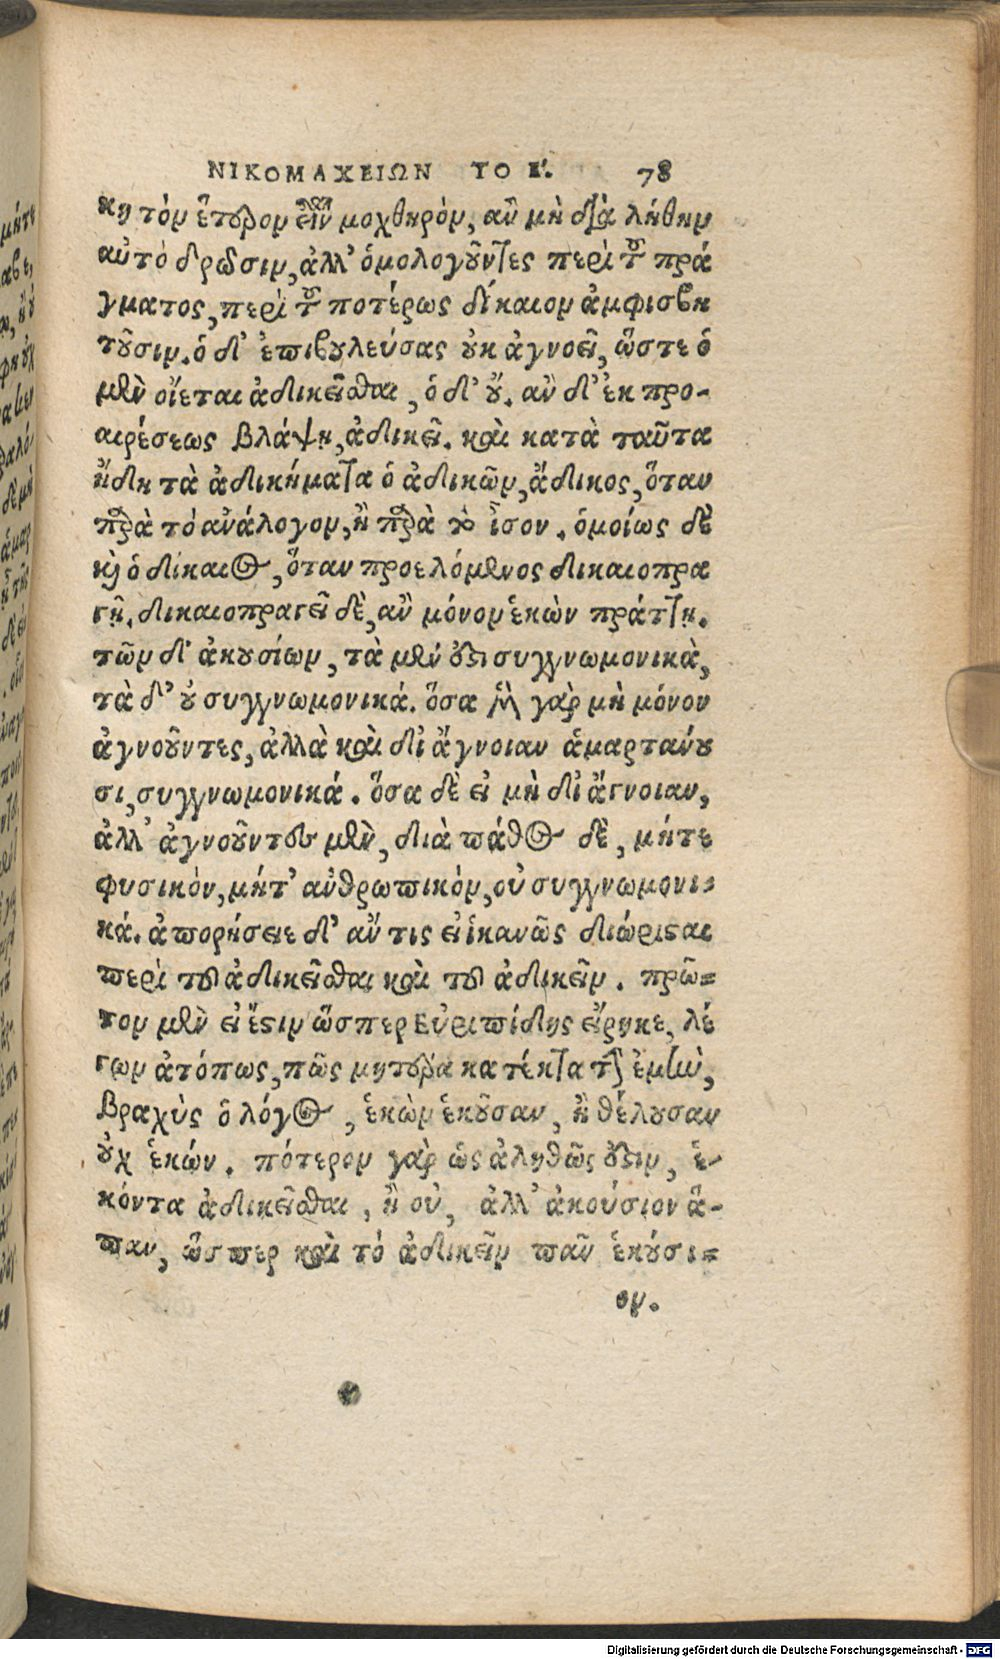 ΝΙΚΟΜΑΧΕΙΩΝ ΤΟ Ε΄. 78
κη τὸν ἕτερον εἶναι μοχθηρὸν, ἂν μὴ διὰ λήθην
αὐτὸ δρῶσιν, ἀλλ' ὁμολογοῦντες περὶ τοῦ πρά
γματος, περὶ τοῦ ποτέρως δίκαιον ἀμφισβη
τοῦσιν. ὁ δ' ἐπιβουλεύσας οὐκ ἀγνοεῖ, ὥστε ὁ
μὲν οἴεται ἀδικεῖσθαι, ὁ δ' οὔ. ἂν δ' ἐκ προ-
αιρέσεως βλάψῃ, ἀδικεῖ. καὶ κατὰ ταῦτα
ἤδη τὰ ἀδικήματα ὁ ἀδικῶν, ἄδικος, ὅταν
παρὰ τὸ ἀνάλογον, ἢ παρὰ τὸ ἶσον. ὁμοίως δὲ
καὶ ὁ δίκαιος, ὅταν προελόμενος δικαιοπρα
γῇ. δικαιοπραγεῖ δὲ, ἂν μόνον ἑκὼν πράττῃ.
τῶν δ' ἀκουσίων, τὰ μέν ἐστι συγγνωμονικὰ,
τὰ δ' οὐ συγγνωμονικά. ὅσα μὲν γὰρ μὴ μόνον
ἀγνοοῦντες, ἀλλὰ καὶ δι' ἄγνοιαν ἁμαρτάνου
σι, συγγνωμονικά. ὅσα δὲ εἰ μὴ δι' ἄγνοιαν,
ἀλλ' ἀγνοοῦντες μὲν, διὰ πάθος δὲ, μήτε
φυσικὸν, μήτ' ἀνθρωπικὸν, οὐ συγγνωμονι-
κά. ἀπορήσειε δ' ἄν τις εἰ ἱκανῶς διώρισται
περὶ τοῦ ἀδικεῖσθαι καὶ τοῦ ἀδικεῖν. πρῶ-
τον μὲν εἰ ἔστιν ὥσπερ Εὐριπίδης εἴρηκε, λέ
γων ἀτόπως, πῶς μητέρα κατέκτα τὴν ἐμὴν,
βραχὺς ὁ λόγος, ἑκὼν ἑκοῦσαν, ἢ θέλουσαν
οὐχ ἑκών. πότερον γὰρ ὡς ἀληθῶς ἐστιν, ἑ-
κόντα ἀδικεῖσθαι, ἢ οὐ, ἀλλ' ἀκούσιον ἅ-
παν, ὥσπερ καὶ τὸ ἀδικεῖν πᾶν ἑκούσι-
ον.
Digitalisierung gefördert durch die Deutsche Forschungsgemeinschaft - DFG